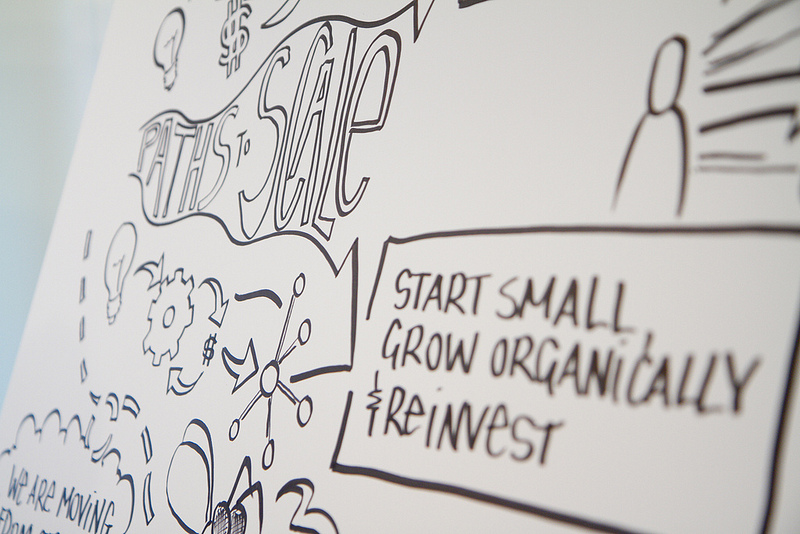 $
PATHS TO SCALE
$
START SMALL,
GROW ORGANICALLY
& REINVEST
WE ARE MOVING
FROM